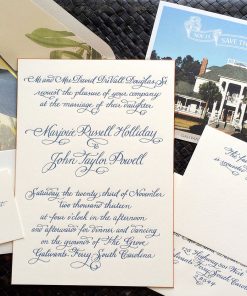 SAVE THE
Mr and Mrs David DuVall Douglas Sr
request the pleasure of your company
at the marriage of their daughter
Marjorie Russell Holliday
to
John Taylor Powell
Saturday the twenty third of November
two thousand thirteen
at four o'clock in the afternoon
and afterwards for dinner and dancing
on the grounds of The Grove
Galivants Ferry South Carolina